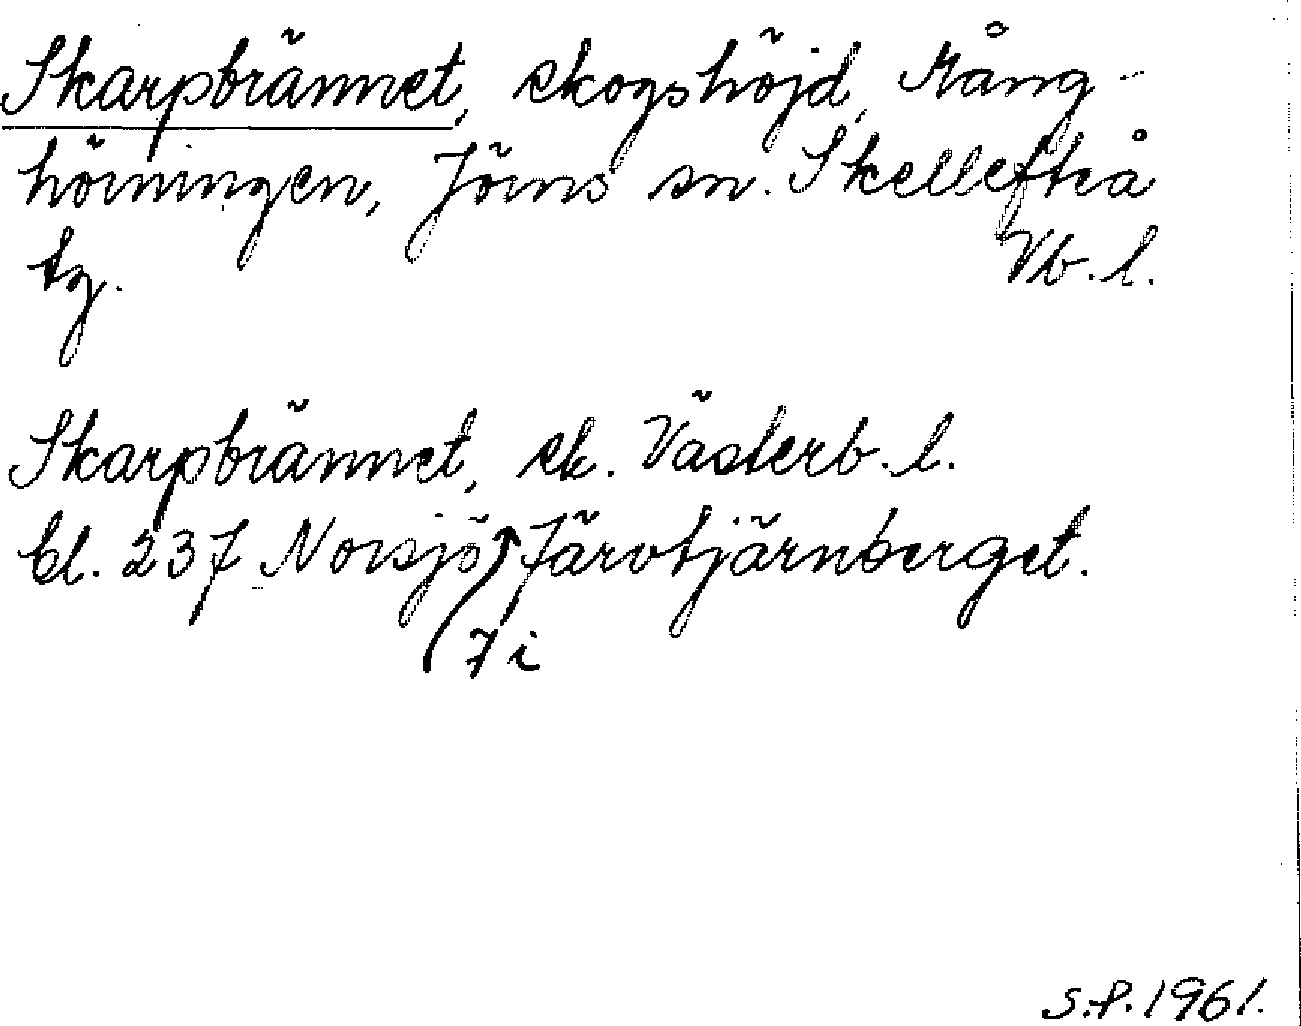 Skarpbrännet, skogshöjd, Mång-
hörningen, Jörns sn. Skellefteå
tg. Vb. l.
Skarpbrännet, ek. Västerb. l.
bl. 237 Norsjö Järvtjärnberget.
7 i
S.P. 1961.